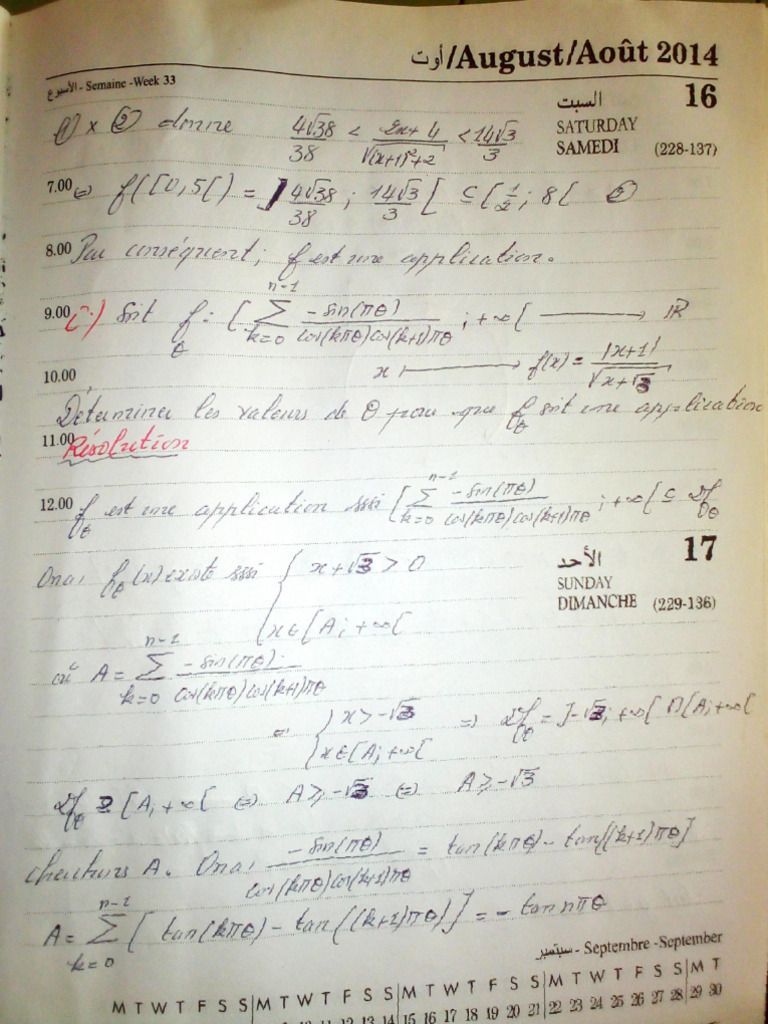 أوت/August/Août 2014
الأسبوع - Semaine -Week 33
السبت 16
SATURDAY
SAMEDI (228-137)
① x ② donne 4√38/38 < 2x+4/√(x+1)²+2 < 14√3/3
7.00 ⇔ f([0,5[) = ]4√38/38 ; 14√3/3[ ⊆ [1/2 ; 8[
8.00 Par conséquent, f est une application.
9.00 Soit fθ : [∑_{k=0}^{n-1} -sin(πθ)/cos(kπθ)cos(k+1)πθ ; +∞[ → ℝ
10.00 x ↦ f(x) = |x+1|/√x+√3
Déterminer les valeurs de θ pour que fθ soit une application
11.00 Résolution
12.00 fθ est une application sssi [∑_{k=0}^{n-1} -sin(πθ)/cos(kπθ)cos(k+1)πθ ; +∞[ ⊆ Dfθ
الأحد 17
SUNDAY
DIMANCHE (229-136)
Ona, fθ(x) existe sssi { x+√3 > 0
x∈[A; +∞[
où A = ∑_{k=0}^{n-1} -sin(πθ)/cos(kπθ)cos(k+1)πθ
⇔ { x > -√3
x∈[A; +∞[
⇒ Dfθ = ]-√3; +∞[ ∩ [A; +∞[
Dfθ = [A, +∞[ ⇔ A ≥ -√3 ⇔ A ≥ -√3
cherchons A. Ona, -sin(πθ)/cos(kπθ)cos(k+1)πθ = tan(kπθ) - tan[(k+1)πθ]
A = ∑_{k=0}^{n-1} [tan(kπθ) - tan((k+1)πθ)] = - tan nπθ
سبتمبر - Septembre -September
M T W T F S S M T W T F S S M T W T F S S M T W T F S S M T
10 11 12 13 14 15 16 17 18 19 20 21 22 23 24 25 26 27 28 29 30